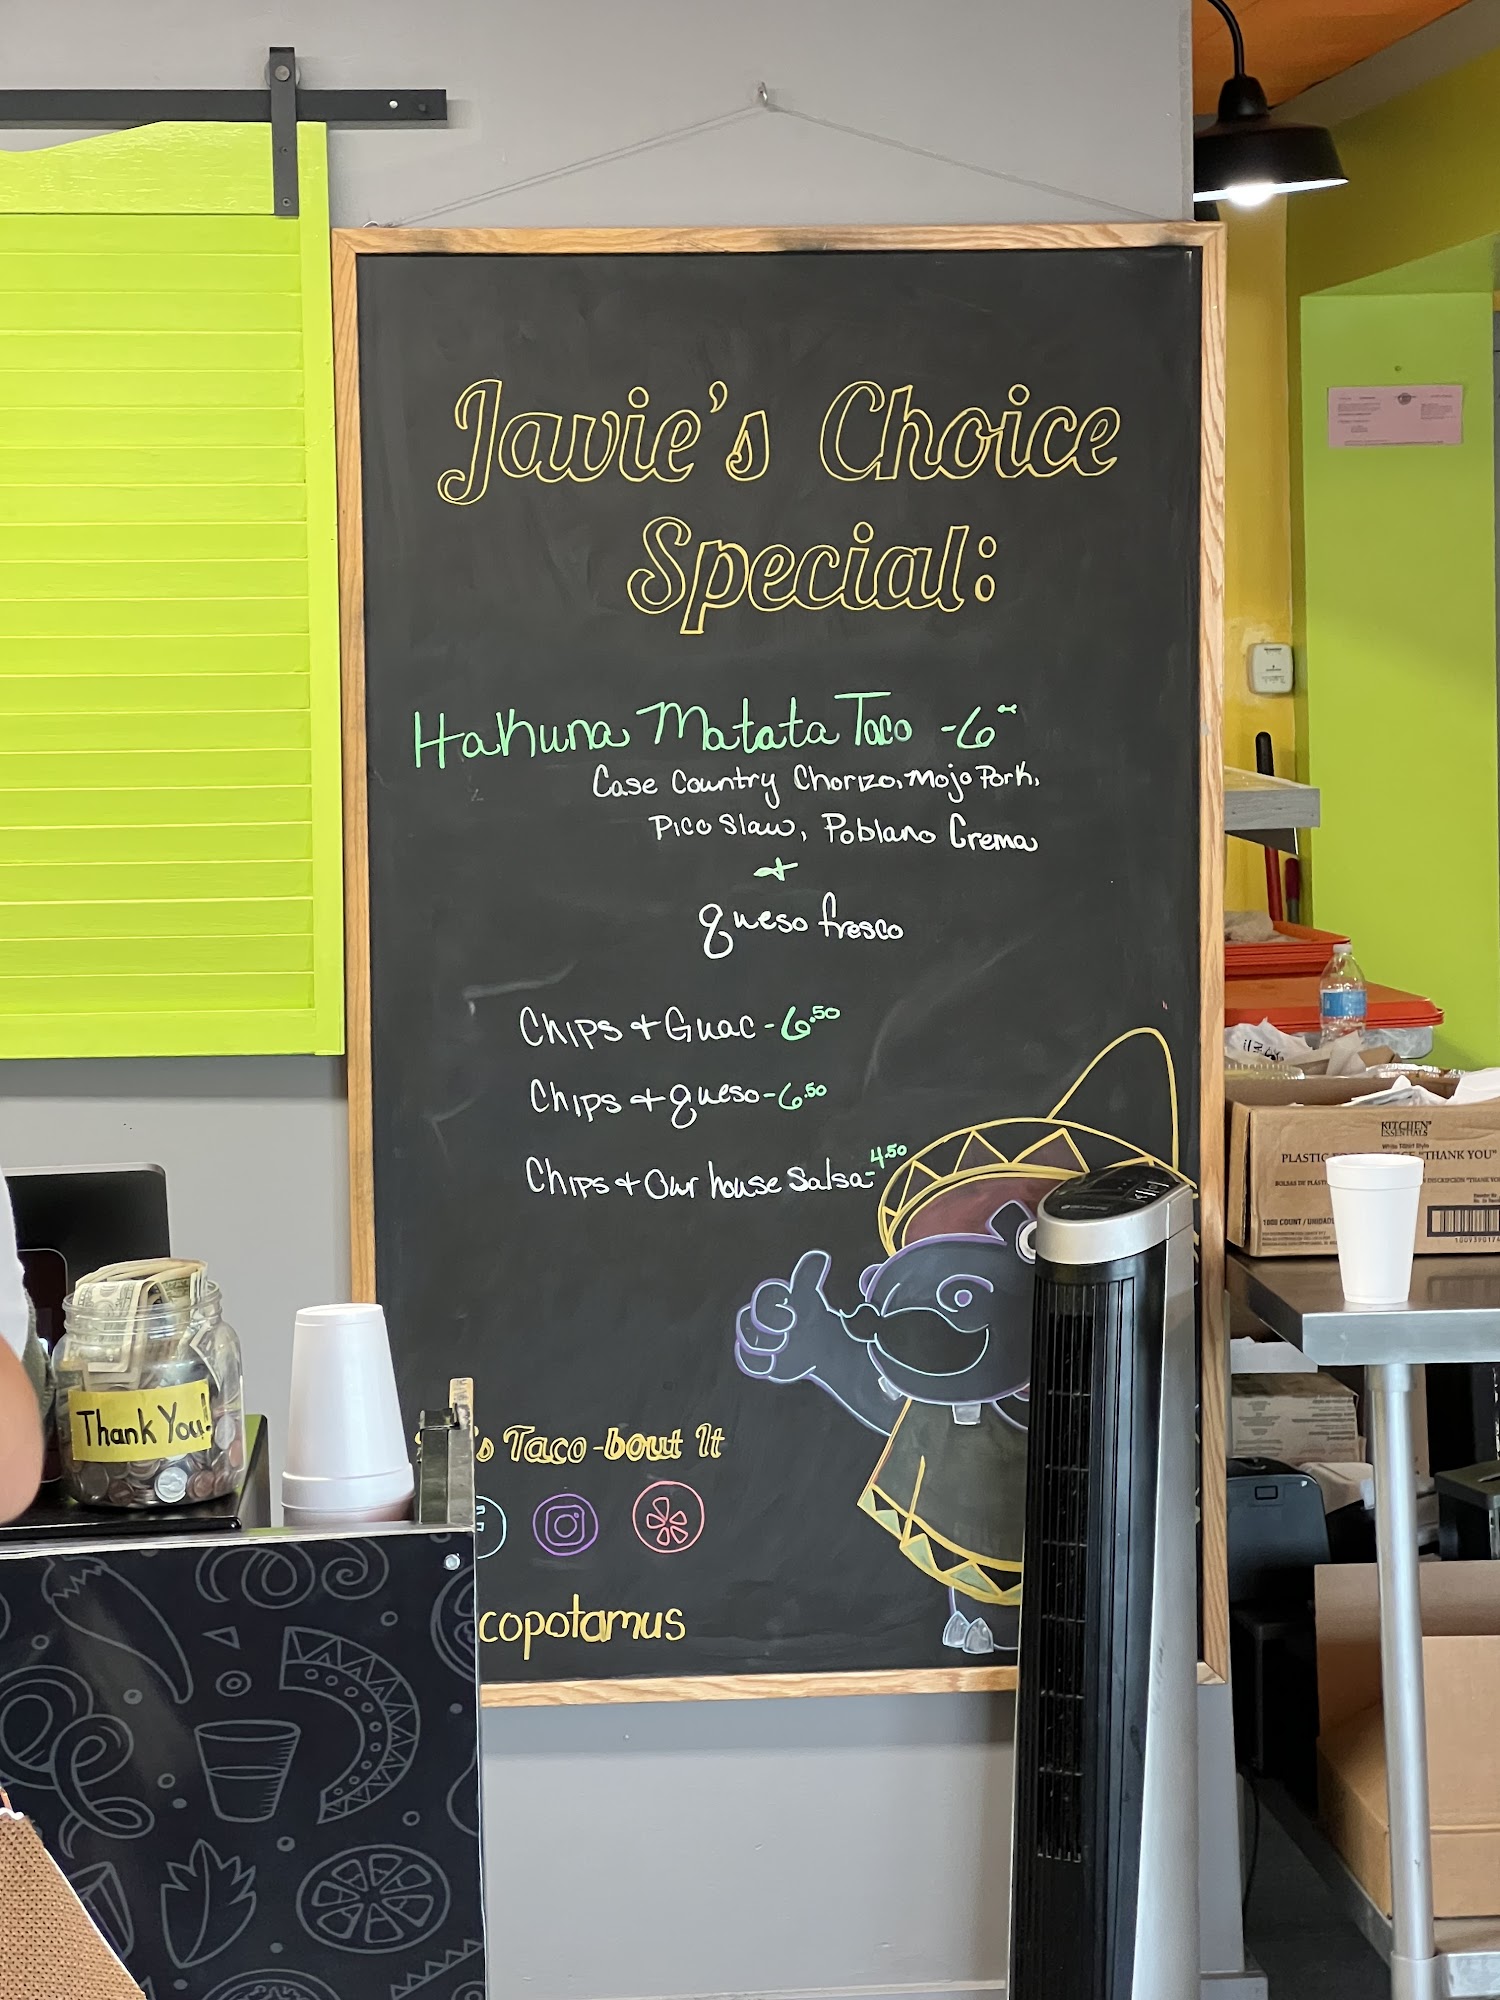 Javie's Choice
Special:
Hakuna Matata Taco - 6
Case Country Chorizo, Mojo Pork,
Pico Slaw, Poblano Crema
+
queso fresco
Chips + Guac - 6.50
Chips + queso - 6.50
Chips + Our house Salsa - 4.50
's Taco-bout It
copotamus
Thank You!
KITCHEN
ESSENTIALS
PLASTIC
"THANK YOU"
1000 COUNT / UNIDAD